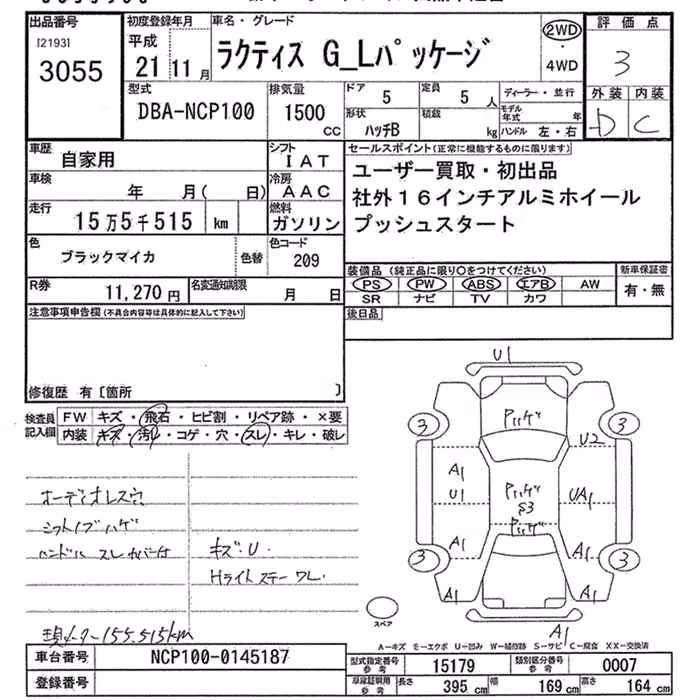 出品番号 初度登録年月 車名・グレード 2WD 評価点
[2193] 平成 ラクティス G_Lパッケージ 4WD 3
3055 21 11月
型式 排気量 ドア 定員 ディーラー・並行 外装 内装
DBA-NCP100 1500 CC 5 5人 モデル年式 年 D C
形状 積載
ハッチB kg ハンドル 左・右
車歴 シフト セールスポイント(正常に機能するものに限ります)
自家用 IAT ユーザー買取・初出品
車検 年 月( 日) 冷房 AAC 社外16インチアルミホイール
走行 15万5千515 km 燃料 ガソリン プッシュスタート
色 ブラックマイカ 色替 色コード 209
装備品(純正品に限り○をつけてください) 新車保証書
R券 11,270円 名変通知期限 月 日 PS PW ABS エアB AW 有・無
SR ナビ TV カワ
注意事項申告欄(不具合内容等は具体的に記入して下さい) 後日品
修復歴 有[箇所 ]
検査員記入欄 FW キズ・飛石・ヒビ割・リペア跡・×要
内装 キズ・汚レ・コゲ・穴・スレ・キレ・破レ
U1
3 ハゲ 3
U2
A1
U1 ハゲ UA1
S3
ハゲ
A1 A1
3 3
A1 A1
A1
オーディオレス穴
シフトノブハゲ
ハンドル スレ カバー付 キズ・U.
Hライトステー ワレ.
スペア
現メーター155.515km
A-キズ モーエクボ U-凹み W-補修跡 S-サビ C-腐食 XX-交換済
車台番号 NCP100-0145187 型式指定番号 参考 15179 類別区分番号 参考 0007
登録番号 車庫証明用 参考 長さ 395 cm 幅 169 cm 高さ 164 cm